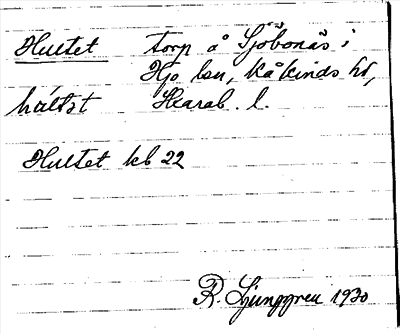 Hultet torp å Sjöbonäs i
Hjo lsn, Kåkinds hd,
húltət Skarab. l.
Hultet kb 22
R. Ljunggren 1930